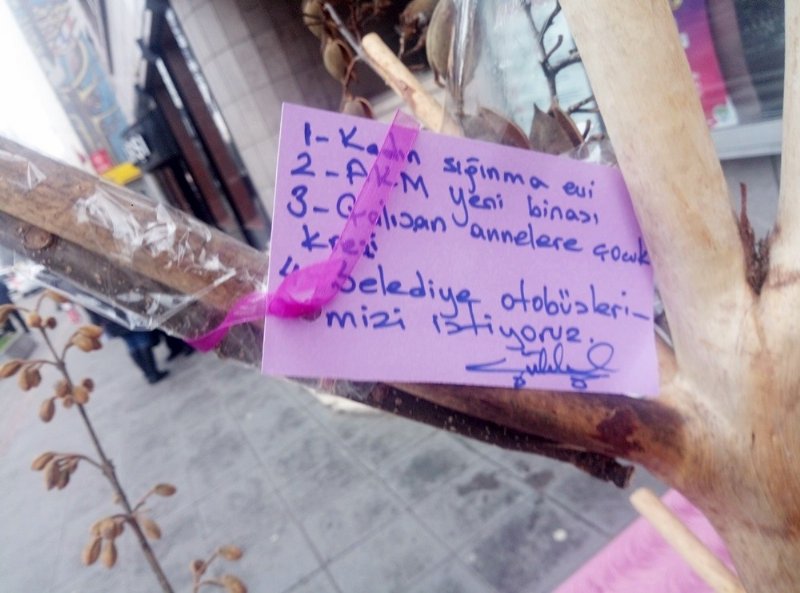 1- Kadın sığınma evi
2- AKM yeni binası
3- Çalışan annelere çocuk
Kreşi
4- Belediye otobüsleri-
mizi istiyoruz.